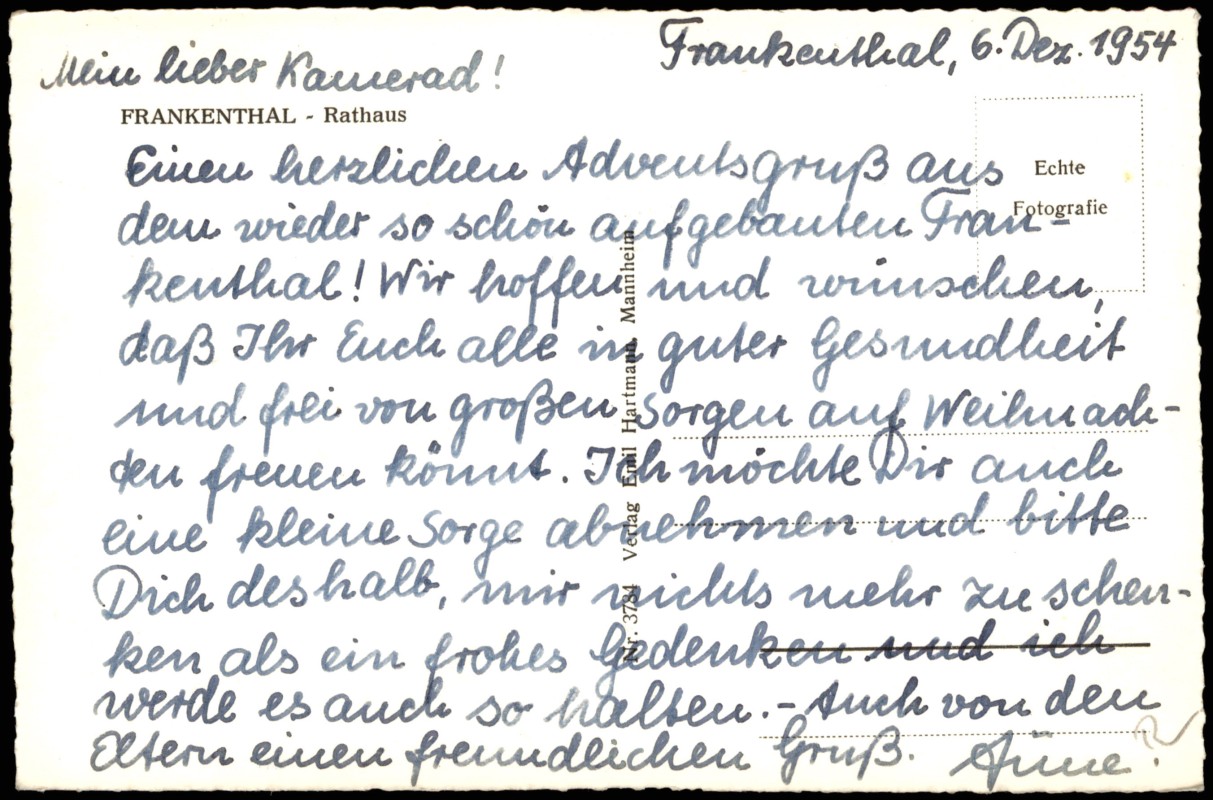 Frankenthal, 6. Dez. 1954
Mein lieber Kamerad!
FRANKENTHAL - Rathaus
Echte
Fotografie
Einen herzlichen Adventsgruß aus
dem wieder so schön aufgebauten Fran-
kenthal! Wir hoffen und wünschen,
daß Ihr Euch alle in guter Gesundheit
und frei von großen Sorgen auf Weihnach-
ten freuen könnt. Ich möchte Dir auch
eine kleine Sorge abnehmen und bitte
Dich deshalb, mir nichts mehr zu schen-
ken als ein frohes Gedenken und ich
werde es auch so halten. - Auch von den
Eltern einen freundlichen Gruß.
Nr. 3734 Verlag Emil Hartmann, Mannheim